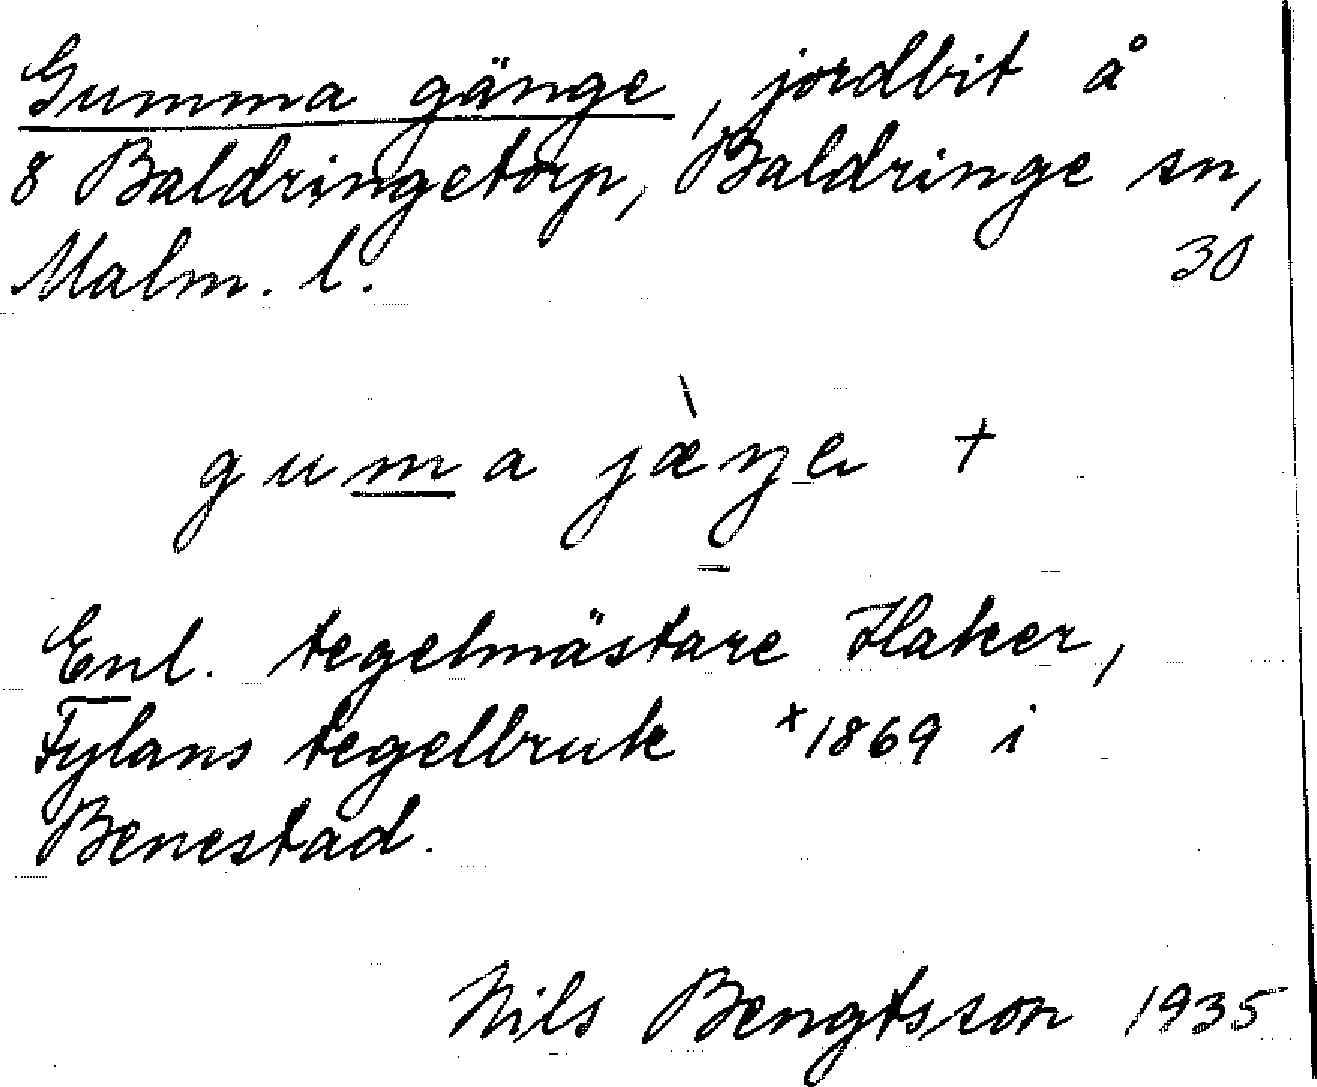 Gumma gänge, jordbit å
8 Baldringetorp, Baldringe sn,
Malm. l. 30
guma jæ̀ŋa +
Enl. tegelmästare Haker,
Fylans tegelbruk +1869 i
Benestad.
Nils Bengtsson 1935